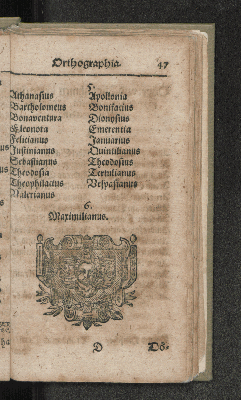 Orthographia. 47
5.
Athanasius Apollonia
Bartholomeus Bonifacius
Bonaventura Dionysius
Eleonora Emerentia
Felicianus Januarius
Justinianus Quintilianus
Sebastianus Theodosius
Theodosia Tertulianus
Theophilactus Vespasianus
Valerianus
6.
Maximilianus.
D Dö-